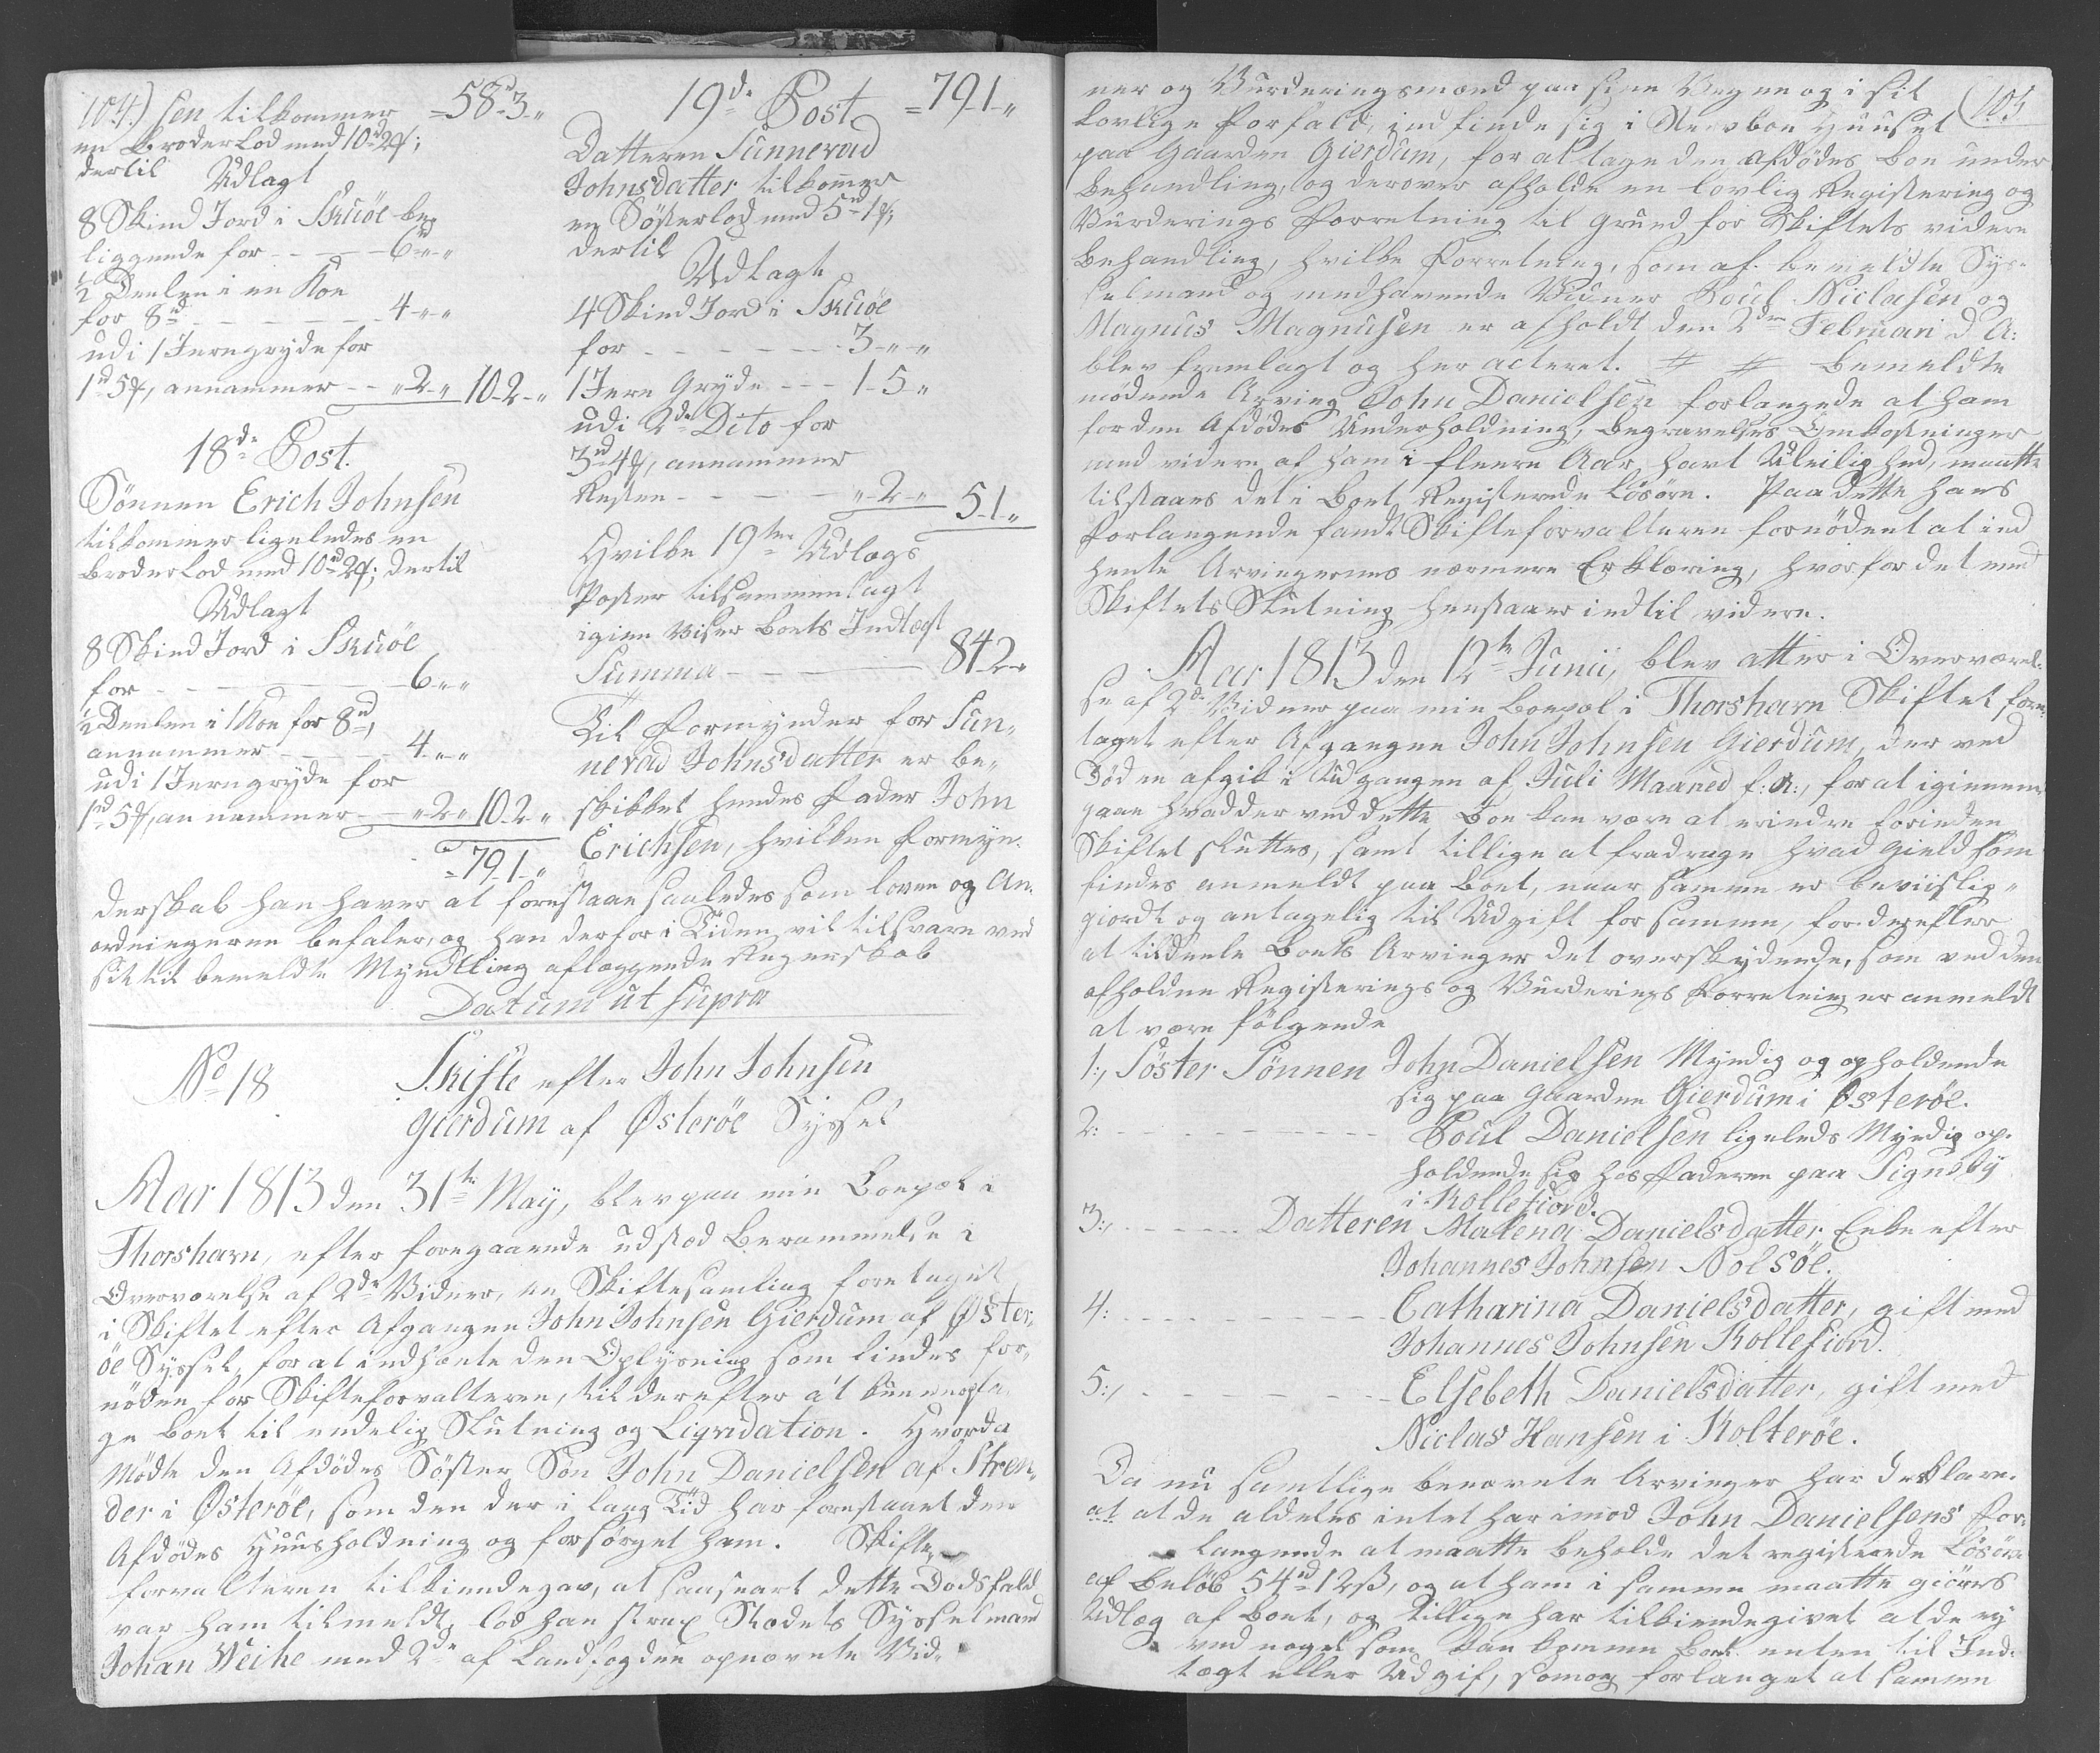 104.) sen tilkommer =58-3-"
en Broderlod med 10d 2f;
dertil
Udlagt
8 Skind Jord i Skuöe be„
liggende for - - - 6-"-"
1/2 Deelen i en Koe
for 8d - - - - 4-"-"
udi 1 Jerngryde for
1d 5f, annammer - - "-2-" 10-2-"
18de Post.
Sönnen Erich Johnsen
tilkommer ligeledes en
Broderlod med 10d 2f; dertil
Udlagt
8 Skind Jord i Skuöe
for - - - - 6-"-"
1/2 Deelen i 1 Koe for 8d,
annammer - - - 4-"-"
udi 1 Jerngryde for
1d 5f, annammer - - "-2-" 10-2-"
=79-1-"
19de Post =79-1-"
Datteren Sunnevad
Johnsdatter tilkommer
en Sösterlod med 5d 1f;
dertil
Udlagt
4 Skind Jord i Skuöe
for - - - - - 3-"-"
1 Jern Gryde - - - 1-5-"
udi 2de Dito for
3d 4f, annammer
Resten - - - - "-2-" 5-1-"
Hvilke 19ten Udlægs
Poster tilsammenlagt
igien viser Boets Indtægt
Summa - - - 84-2-"
Til Formynder for Sun„
nevad Johnsdatter er be„
skikket hendes Fader John
Erichsen, hvilken Formyn„
derskab han haver at forestaae saaledes som Loven og An„
ordningerne befaler, og han derfor i Tiden vil tilsvare ved
sit til bemeldte Myndtling aflæggende Regnskab
Datum ut supra
No 18 Skifte efter John Johnsen
Gierdum af Østeröe Syssel
Aar 1813 den 31te May, blev paa min Boepæl i
Thorshavn, efter foregaaende udstæd Berammelse i
Overværelse af 2de Vidner, en Skiftesamling foretaget
i Skiftet efter Afgangne John Johnsen Gierdum af Öster„
öe Syssel, for at indhente den Oplysning som findes for„
nöden for Skifteforvalteren, til derefter at kunne
ge Boet til endelig Slutning og Liqvidation. Hvorda
Mödte den Afdödes Söster Sön John Danielsen af Stren„
der i Österöe, som den der i lang Tid har forestaaet den
Afdödes Huusholdning og forsörget ham. Skifte„
forvalteren tilkiendegav, at saasnart dette Dödsfald
var ham tilmeldt, lod han strax Stædets Sysselmand
Johan Weihe med 2de af Landfogden opnævnte Vid„
ner og Vurderingsmænd paa sine Vegne og i sit (105
lovlige Forfald, indfinde sig i Sterboe Huuset
paa Gaarden Gierdum, for at tage den Afdödes Boe under
Behandling, og derover afholde en lovlig Registering og
Vurderings Forretning til Grund for Skiftets videre
Behandling, hvilke Forretning, som af bemeldte Sys„
selmand og medhavende Vidner Poul Niclasen og
Magnus Magnusen er afholdt den 2den Februari d. A:
blev fremlagt og her acteret. # # Bemeldte
mödende Arving John Danielsen forlangede at ham
for den Afdödes Underholdning, Begravelses Omkostninger
med videre af ham i fleere Aar havt Uleilighed, maatte
tilstaaes det i Boet Registerede Lösöre. Paa dette hans
Forlangende fandt Skifteforvalteren fornödent at ind
hente Arvingernes nærmere Erklæring, hvorfor det med
Skiftets Slutning henstaaer indtil videre.
Aar 1813 den 12te Junii, blev atter i Overværel„
se af 2de Vidner paa min Boepæl i Thorshavn Skiftet fore„
taget efter Afgangne John Johnsen Gierdum, der ved
Döden afgik i Udgangen af Juli Maaned f: A:, for at igiennem
gaae hvad der ved dette Boe kan være at erindre forinden
Skiftet sluttes, samt tillige at fradrage hvad Gield som
findes anmeldt paa Boet, naar samme er beviislig„
giordt og antagelig til Udgift for samme, for derefter
at tildeele Boets Arvinger det overskydende, som ved den
afholdne Registerings og Vurderings Forretning er anmeldt
at være fölgende
1:, Söster Sönnen John Danielsen Myndig og opholdende
sig paa Gaarden Gierdum i Østeröe.
2: - - - - - Poul Danielsen ligeleds Myndig op„
holdende sig hos Faderen paa Signeby
i Kollefiord.
3:, - - - Datteren Malena Danielsdatter, Enke efter
Johannes Johnsen Nolsöe.
4: - - - - - Catharina Danielsdatter, gift med
Johannes Johnsen Kollefiord.
5:, - - - - - Elsebeth Danielsdatter, gift med
Niclas Hansen i Kolteröe.
Da nu samtlige benævnte Arvinger har deklare„
at at de aldeles intet har imod John Danielsens For„
langende at maatte beholde det registerede Lösöre
af Belöb 54d 12ß, og at ham i samme maatte giöres
Udlæg af Boet, og tillige har tilkiendegivet at de ey
ved noget som kan komme Boet enten til Ind„
tægt eller Udgif, som og forlanget at samme